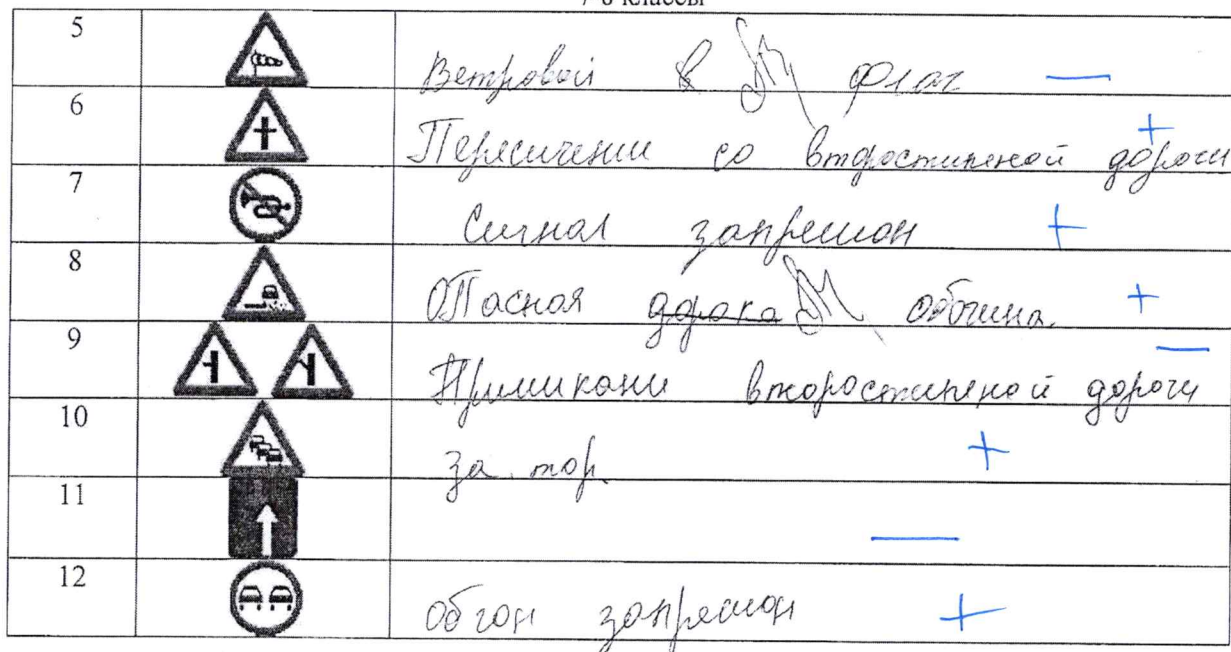 7-8 классы
5 Ветровой в флаг —
6 Пересичении со второстиненой дороги +
7 Сигнал запрешон +
8 Опасная обочина. +
9 Примикани второстиненой дороги —
10 за тор +
11 —
12 обгон запрешон +